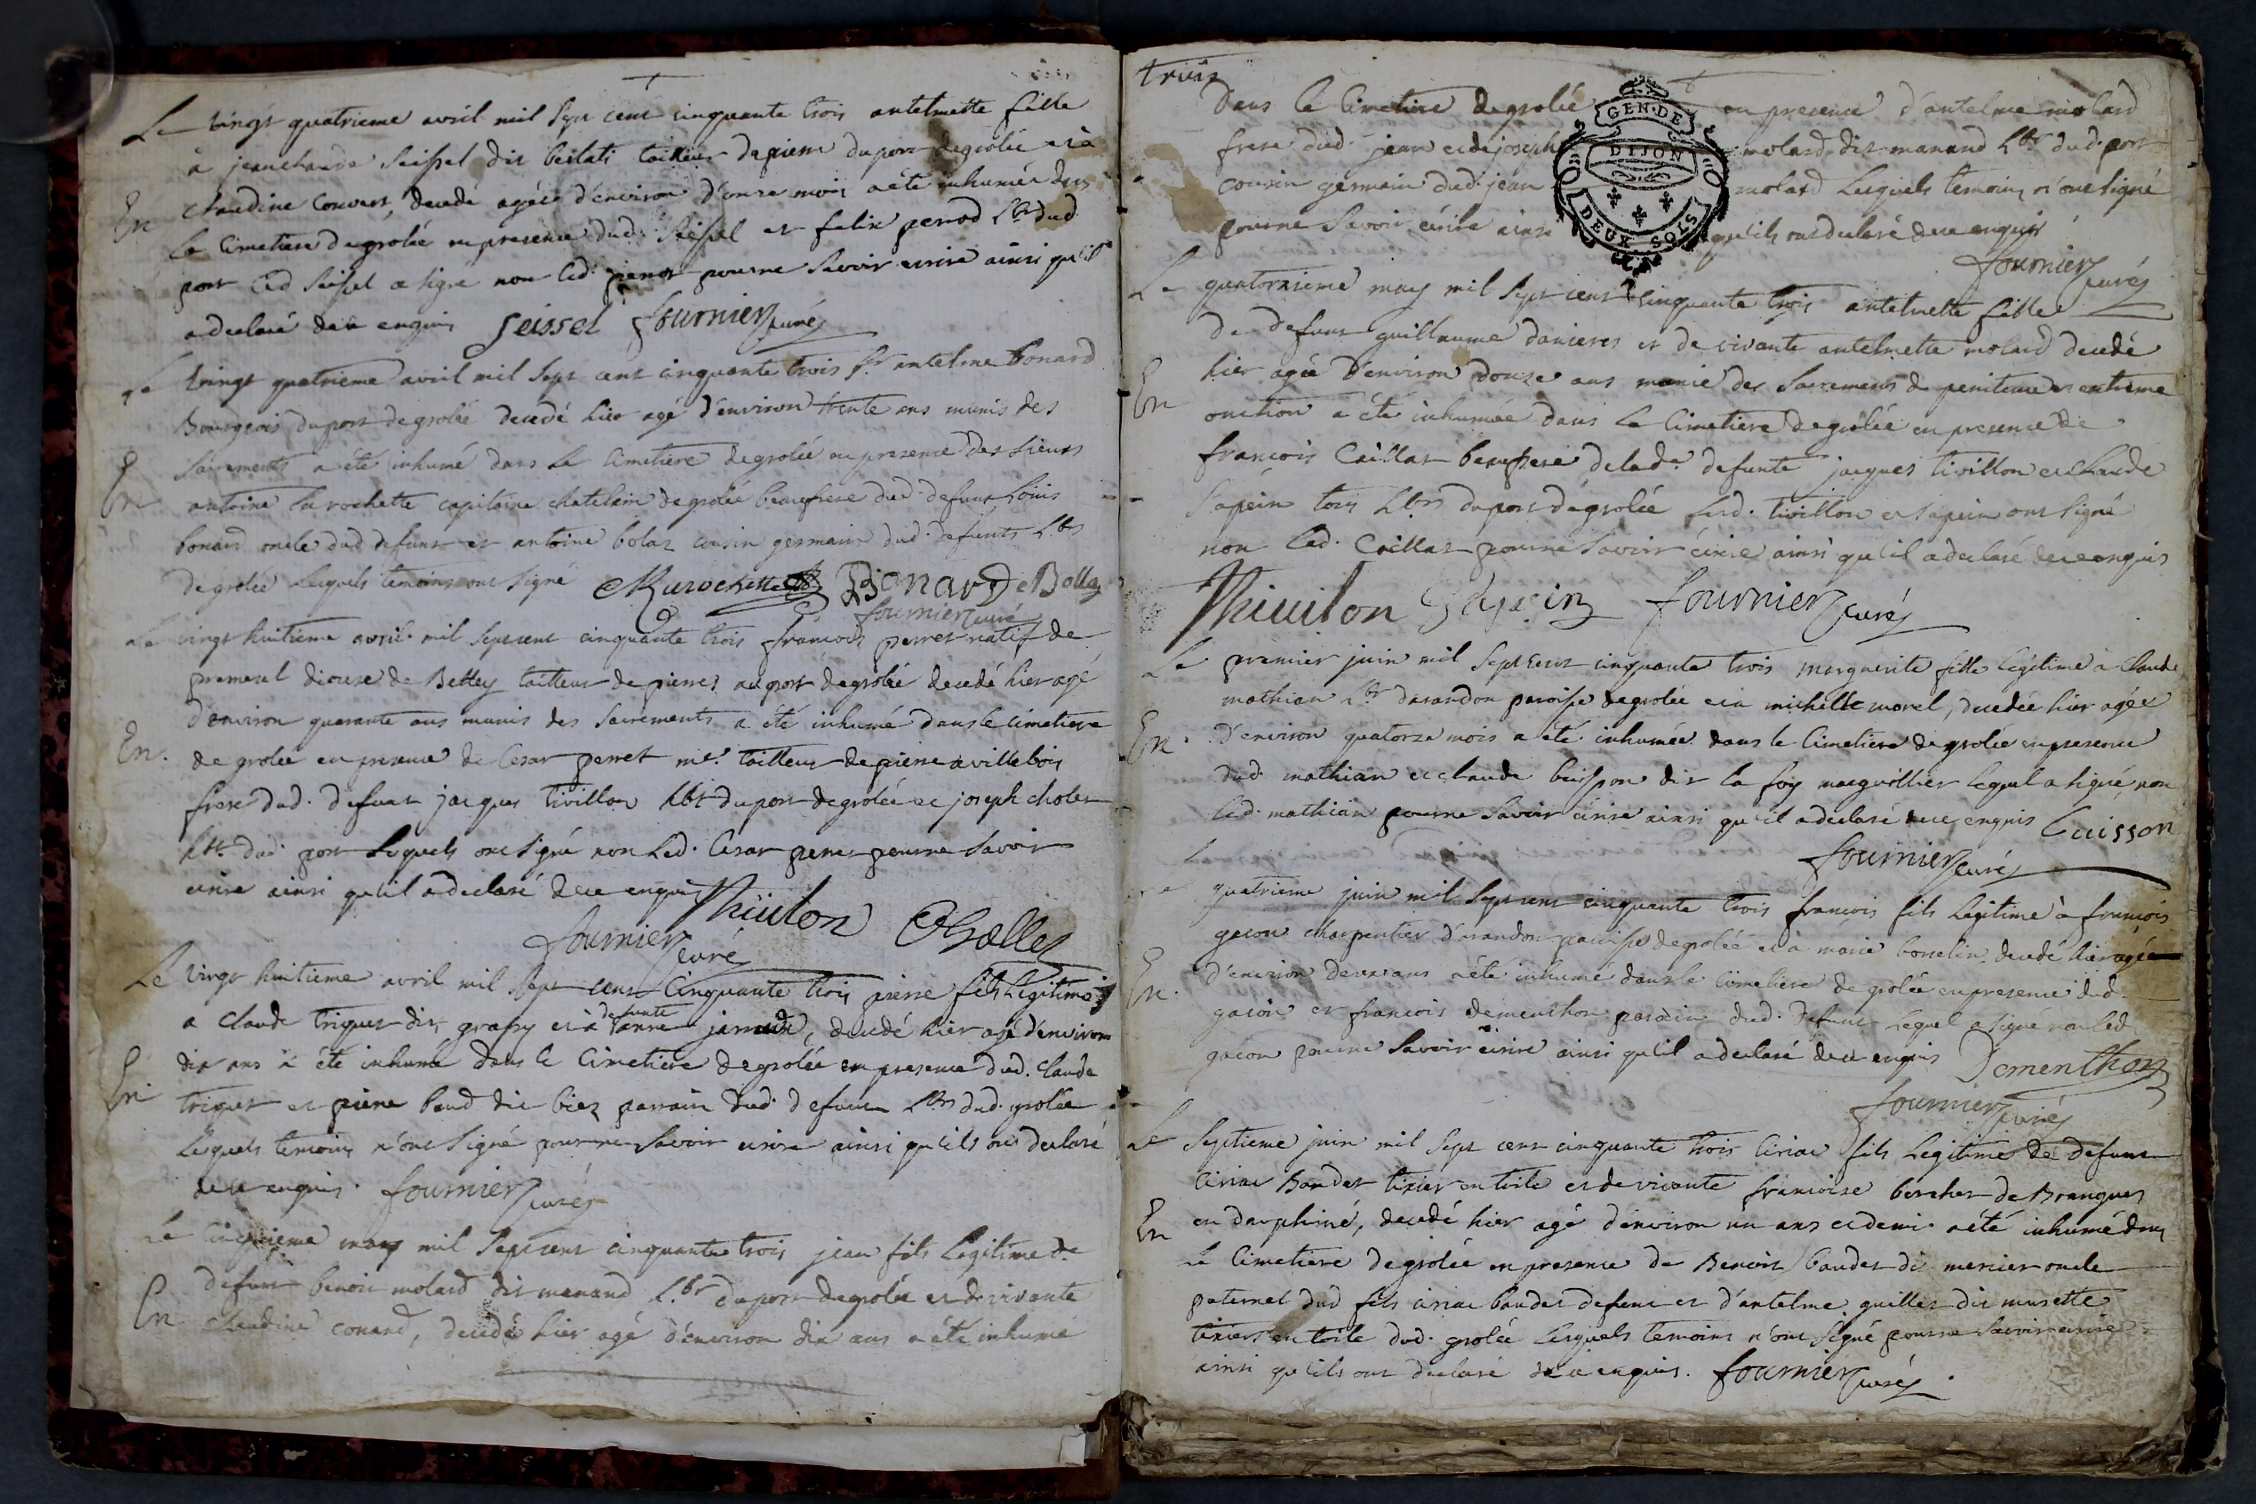 Le vingt quatrieme avril mil sept cent cinquante trois antelmette fille
à jeanclaude Seissel dit tailleur de pierre du port de grolée et à
En
claudine Convert, decedé agée d'environ d'onze mois a été inhumée dans
le Cimetiere de grolée en presence dud. Seissel et felix perrod hbt dud.
port led Seissel a signé non led. perrod pour ne Savoir ecrire ainsi qu'il
a declaré de ce enquis Seissel fournier curé
Le vingt quatrieme avril mil sept cent cinquante trois Sr antelme bonard
Bourgeois du port de grolée decedé hier agé d'environ trente ans munis des
En
Sacrements a été inhumé dans le Cimetiere de grolée en presence des Sieurs
antoine larochette capitaine chatelain de grolée beaufrere dud. defunt Loüis
bonard oncle dud defunt et antoine bolaz cousin germain dud. defunts hbts
de grolée Lesquels temoins ont signé Bonard Bollaz
fournier curé
Le vingt huitieme avril mil sept cent cinquante trois françois perret natif de
premesel diocese de Belley tailleur de pierres au port de grolée decedé hier agé
d'environ quarante ans munis des Sacrements a été inhumé dans le Cimetiere
En.
de grolée en presence de Cesar perret me. tailleur de pierre a villebois
frere dud. defunt jacques tivillon hbt du port de grolée et joseph cholet
hbt dud. port lesquels ont signé non led. Cesar perret pour ne Savoir
ecrire ainsi qu'il a declaré de ce enquis Thiuilon Chollet
fournier curé
Le vingt huitieme avril mil sept cent Cinquante trois pierre fils Legitime
a Claude triquet dit et à defunte anne decedé hier agé d'environ
dix ans a été inhumé dans le Cimetiere de grolée en presence dud. Claude
En
triquet et pierre baud dit biez parrain dud. defunt hbts dud. grolée
Lesquels temoins n'ont Signé pour ne Savoir ecrire ainsi qu'ils ont declaré
de ce enquis. fournier curé
Le cinquieme may mil sept cent cinquante trois jean fils Legitime de
defunt benoit molard dit manand hbt du port de grolée et de vivante
En
claudine conard, decedé hier agé d'environ dix ans a été inhumé
trois
Dans le Cimetiere de grolée en presence d'antelme molard
frere dud. jean et de joseph molard dit manand hbt dud. port
cousin germain dud. jean molard Lesquels temoins n'ont signé
pour ne Savoir ecrire ainsi qu'ils ont declaré de ce enquis
fournier curé
GEN. DE
DIJON
DEUX SOLS
Le quatorzieme may mil sept cent cinquante trois antelmette fille
de defunt guillaume danieres et de vivante antelmette molard decedé
hier agée d'environ douze ans munie des Sacrements de penitence et extreme
En
onction a été inhumée dans le Cimetiere de grolée en presence de
françois Caillat beaupere de lade. defunte jacques tivillon et claude
Sapein tous hbts du port de grolée Led. tivillon et Sapein ont Signé
non led. Caillat pour ne Savoir ecrire ainsi qu'il a declaré de ce enquis
Thiuilon Sapein fournier curé
Le premier juin mil sept cent cinquante trois marguerite fille legitime à Claude
mathian hbt darandon paroisse de grolée et à michelle morel, decedée hier agée
En.
d'environ quatorze mois a été inhumée dans le Cimetiere de grolée en presence
dud. mathian et claude buisson dit la foy marguillier lequel a signé non
led. mathian pour ne Savoir ecrire ainsi qu'il a declaré de ce enquis buisson
fournier curé
Le quatrieme juin mil sept cent cinquante trois françois fils Legitime à françois
gacon charpentier d'arandon paroisse de grolée et à marie decedé hier agé
En.
d'environ deux ans a été inhumé dans le Cimetiere de grolée en presence dud.
gacon et françois dementhon parrain dud. defunt Lequel a signé non led.
gacon pour ne Savoir ecrire ainsi qu'il a declaré de ce enquis Dementhon
fournier curé
Le Septieme juin mil sept cent cinquante trois Ciriac fils Legitime de defunt
Ciriac Baudet tixier en toile et de vivante francoise bercher de Brangues
En
en dauphiné, decedé hier agé d'environ un ans et demi a été inhumé dans
Le Cimetiere de grolée en presence de Benoit baudet dit mercier oncle
paternel dud fils ciriac baudet defunt et d'antelme quillet dit musette
tixiers en toile dud. grolée Lesquels temoins n'ont Signé pour ne Savoir ecrire
ainsi qu'ils ont declaré de ce enquis. fournier curé.